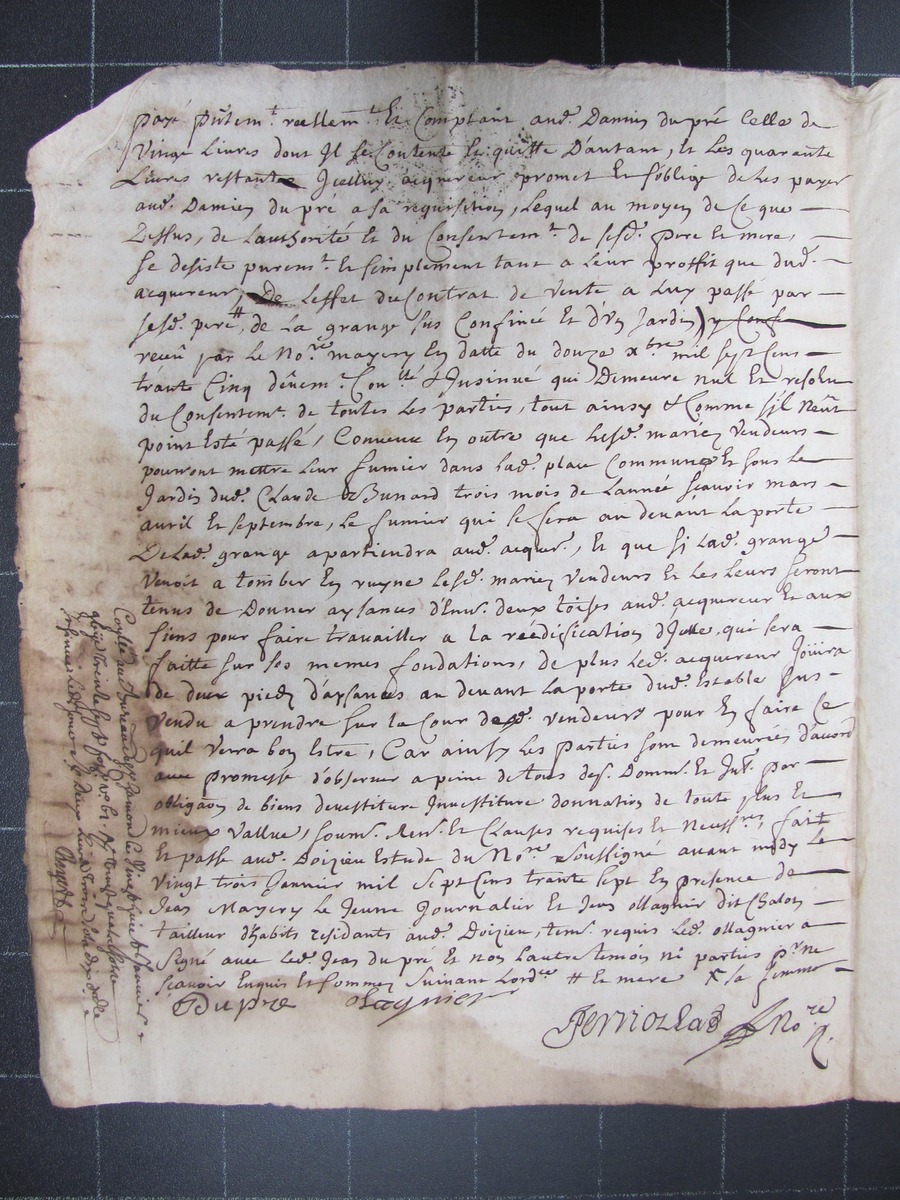 payé prñtem.t reellem.t Et Comptant aud. Damien du pré Celle de
Vingt Livres dont Il se Contente le quitte D'autant, Et Les quarante
Livres restantes Icelluy acquereur promet Et s'oblige de Les payer
aud. Damien du pré a sa requisition, Lequel au moyen de Ce que
Dessus, de Lauthorité Et du Consentem.t de sesd. pere et mere,
se desiste purem.t Et simplement tant a Leur proffit que dud.
acquereur, De Leffet du Contrat de Vente a Luy passé par
sesd. pere # , de La grange sus Confinée Et d'Un Jardin)
receu par Le No.re mayery En datte du douze x.bre mil sept Cens
trante Cinq dûem.t Con.llé & Insinué qui Demeure nul Et resolu
du Consentem.t de toutes Les parties, tout ainsy & Comme s'il Neût
point Esté passé, Convenu En outre que Lesd. mariez Vendeurs
pourront mettre Leur fumier dans Lad. place Commune Et sous Le
Jardin dud. Claude Bunard trois mois de Lannée scavoir mars
avril Et septembre, Le fumier qui se fera au devant La porte
De Lad. grange apartiendra aud. acquer., Et que si Lad. grange
Venoit a tomber En ruyne Lesd. mariez Vendeurs Et Les Leurs seront
tenus de Donner aysances d'Env. deux toises aud. acquereur Et aux
siens pour faire travailler a La réédification d'Icelle, qui sera
faitte sur ses memes fondations, de plus Led. acquereur Joüira
de deux pieds d'aysances au devant La porte dud. Estable sus
Vendu a prendre sur La Cour desd. vendeurs pour En faire Ce
quil Verra bon Estre, Car ainsy Les parties sont demeurées d'acord
avec promesse d'observer a peine de tous des. Domm. Et Int. par
obligaõn de biens devestiture Investiture donnation de toute plus Et
mieux Vallue, soum. Ren. Et Clauses requises Et Necess.res, fait
Et passé aud. Doizieu Estude du No.re soussigné avant midy Le
Vingt trois Janvier mil sept Cens trante sept En presence de
Jean Mayery Le Jeune Journalier Et Jean ollagnier dit Chalon
tailleur d'habits residants aud. Doizieu, tem. requis Led. ollagnier a
signé avec Led. Jean du pré et non Lautre temoin ni parties p.r ne
scavoir Enquis Et sommez suivant Lord.ce # Et mere x sa femme
Dupré Olagnier
Perriolla No.re